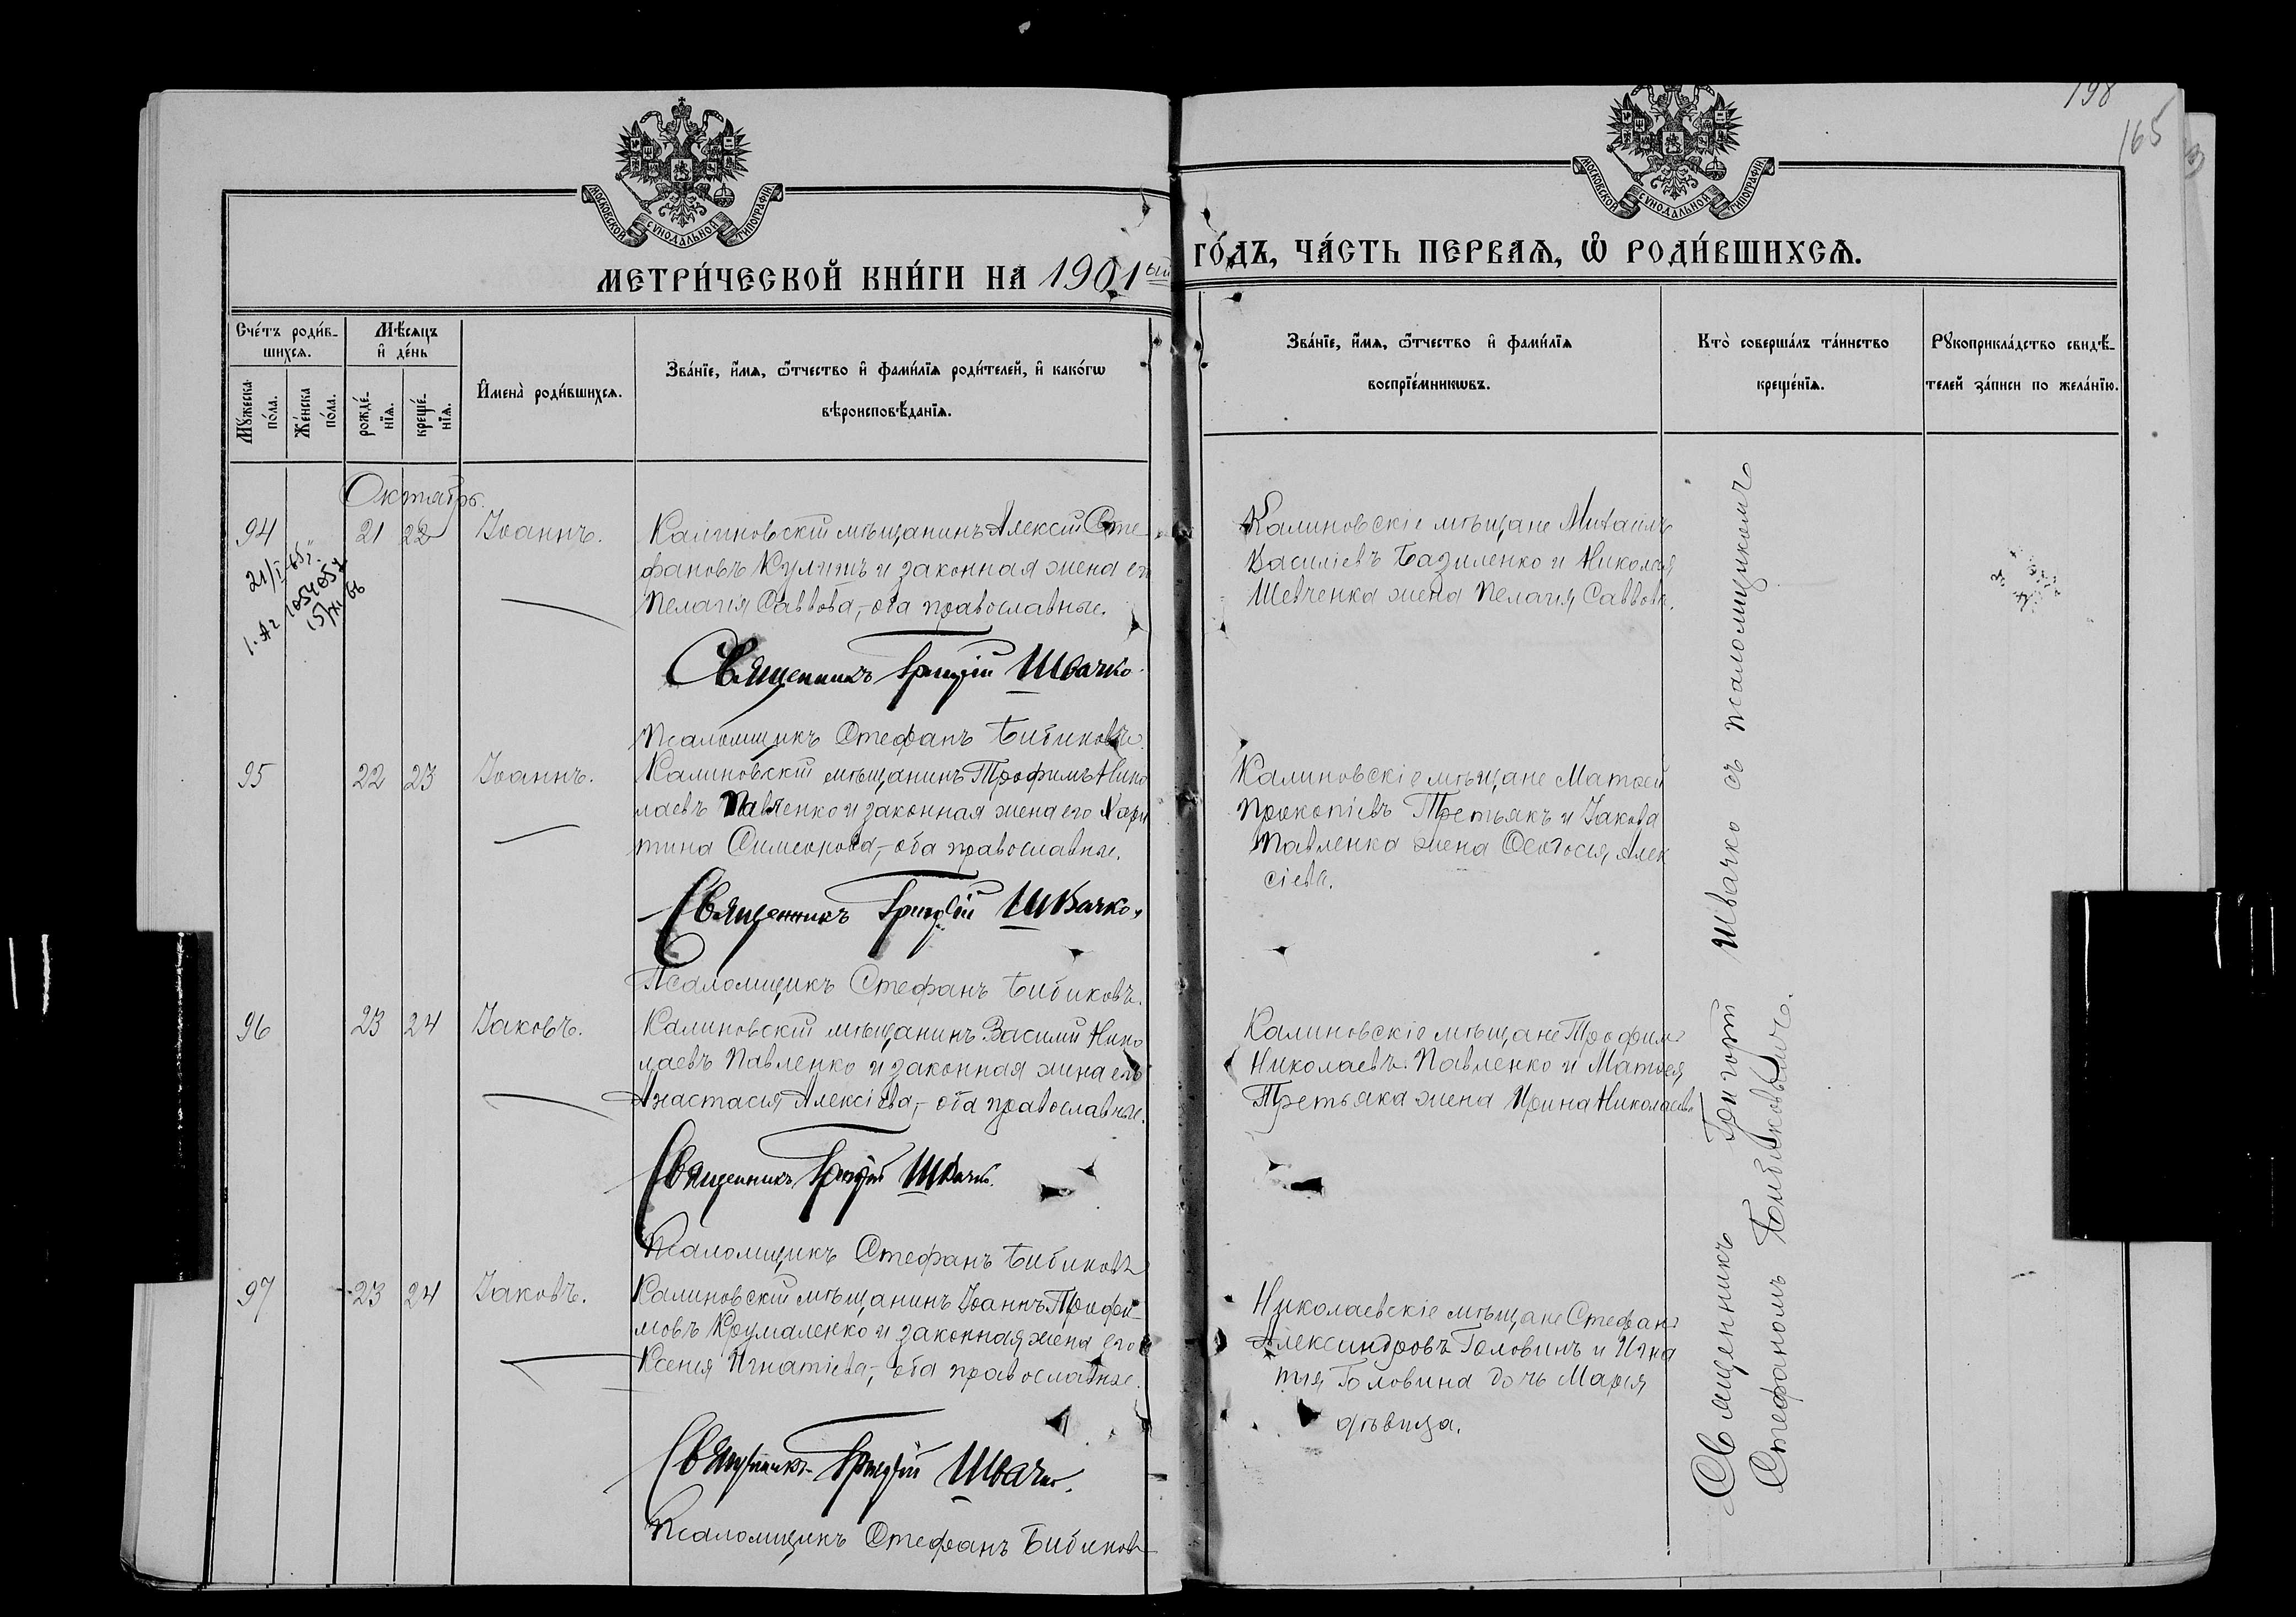 198
165
МОСКОВСКОЙ СѴНОДАЛЬНОЙ ТИПОГРАФІИ
МОСКОВСКОЙ СѴНОДАЛЬНОЙ ТИПОГРАФІИ
МЕТРИ́ЧЕСКОЙ КНИ́ГИ НА 1901ый
ГО́ДЪ, ЧА́СТЬ ПЕРВАѦ, Ѽ РОДИ́ВШИХСѦ.
Сче́тъ роди́в-
шихсѧ.
Мꙋ́жеска
по́ла.
Же́нска
по́ла.
Мѣ́сѧцъ
и҆ де́нь
рожде́-
нїѧ.
креще́-
нїѧ.
И҆мена̀ роди́вшихсѧ.
Зва́нїе, и҆́мѧ, ѻ҆́тчество и҆ фами́лїѧ роди́телей, и҆ како́гѡ
вѣроисповѣ́данїѧ.
Зва́нїе, и҆́мѧ, ѻ҆́тчество и҆ фами́лїѧ
воспрїе́мникѡвъ.
Кто̀ соверша́лъ та́инство
креще́нїѧ.
Рꙋкоприкла́дство свидѣ́-
телей за́писи по жела́нїю.
Октябрь.
94 21 22 Іоаннъ.
Калиновскій мѣщанинъ Алексій Сте-
фановъ Кулишъ и законная жена его
Пелагія Саввова,- оба православные.
Священникъ Григорій Швачко.
Псаломщикъ Стефанъ Бибиковъ.
Калиновскіе мѣщане Михаилъ
Василіевъ Базиленко и Николая
Шевченка жена Пелагія Саввова.
21/I-65г.
95 22 23 Іоаннъ.
Калиновскій мѣщанинъ Трофимъ Нико
лаевъ Павленко и законная жена его Хари
тина Симеонова,- оба православные.
Священникъ Григорій Швачко.
Псаломщикъ Стефанъ Бибиковъ.
Калиновскіе мѣщане Матѳей
Прокопіевъ Третьякъ и Іакова
Павленка жена Ѳеодосія Алек
сіева.
96 23 24 Іаковъ.
Калиновскій мѣщанинъ Василій Нико
лаевъ Павленко и законная жена его
Анастасія Алексіева,- оба православные.
Священникъ Григорій Швачко.
Псаломщикъ Стефанъ Бибиковъ
Калиновскіе мѣщане Трофимъ
Николаевъ Павленко и Матѳея
Третьяка жена Ирина Николаева
97 23 24 Іаковъ.
Калиновскій мѣщанинъ Іоаннъ Трофи-
мовъ Крумаленко и законная жена его
Ксенія Игнатіева,- оба православные.
Священникъ Григорій Швачко.
Псаломщикъ Стефанъ Бибиковъ
Николаевскіе мѣщане Стефанъ
Александровъ Головинъ и Игна
тія Головина дочь Марія
дѣвица.
Священникъ Григорій Швачко съ псаломщикомъ
Стефаномъ Бибиковымъ.